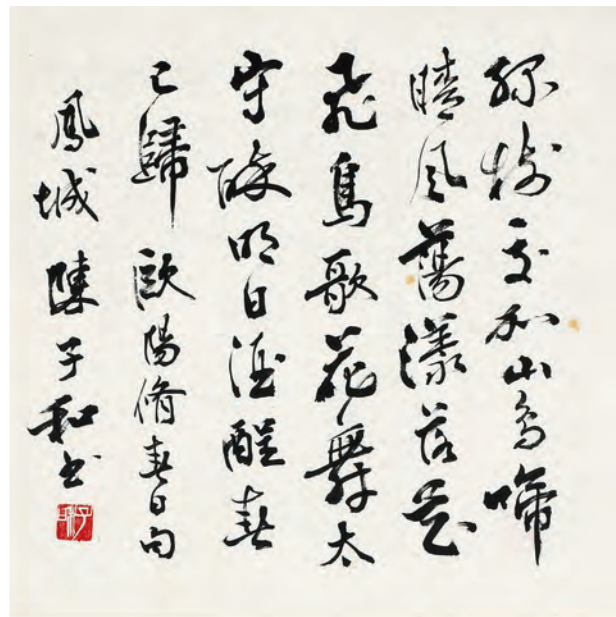 綠樹交加山鳥啼
晴風蕩漾落花
飛鳥歌花舞太
守醉明日酒醒春
已歸 歐陽脩春日句
鳳城 陳子和書